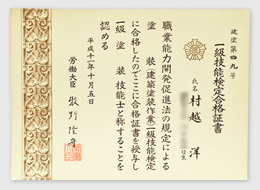 建塗第四九号
一級技能検定合格証書
氏名
村越 洋
日生
職業能力開発促進法の規定による
塗装(建築塗装作業)一級技能検定
に合格したのでここに合格証書を授与し
一級塗装技能士と称することを
認める
平成十一年十月五日
労働大臣